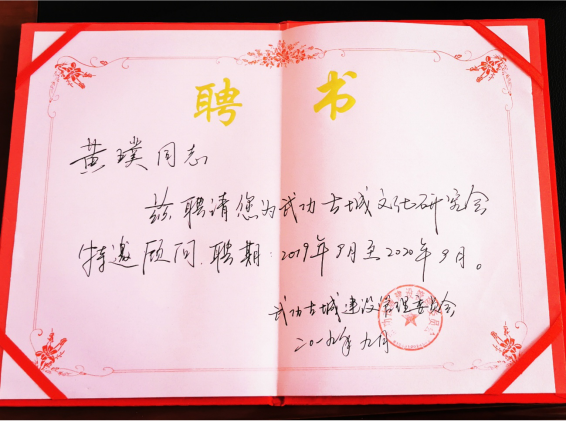 聘书
黄璞同志
兹聘请您为武功古城文化研究会
特邀顾问.聘期:2019年9月至2020年9月。
武功古城建设管理委员会
二〇一九年九月